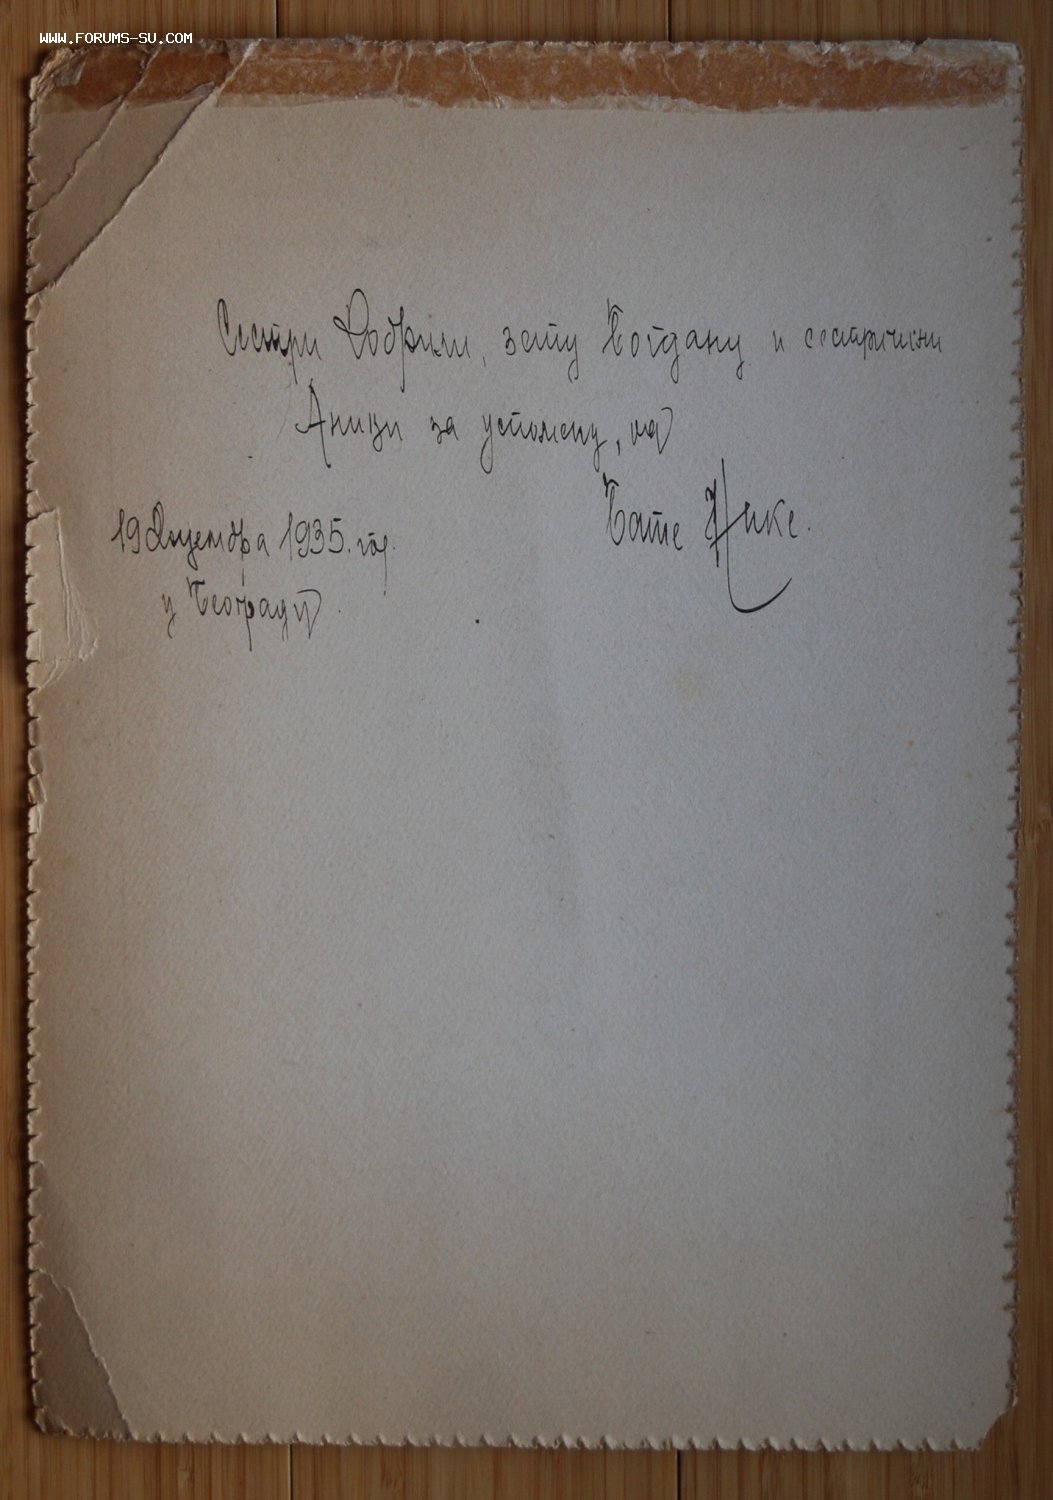 WWW.FORUMS-SU.COM
Сестри Добрили, зету Богдану и сестричини
Аници за успомену, од
Бате Нике.
19 Децембра 1935. год.
у Београду